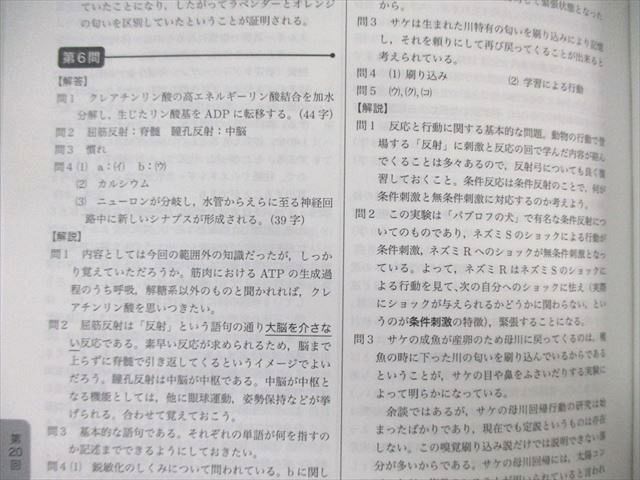 ていたことになり，したがってラベンダーとオレンジ
の匂いを区別していたということが証明される。
第6問
【解答】
問1　クレアチンリン酸の高エネルギーリン酸結合を加水
分解し，生じたリン酸基をADPに転移する。(44字)
問2　屈筋反射：脊髄　瞳孔反射：中脳
問3　慣れ
問4 (1)　a：(イ)　b：(ウ)
(2)　カルシウム
(3)　ニューロンが分岐し，水管からえらに至る神経回
路中に新しいシナプスが形成される。(39字)
【解説】
問1　内容としては今回の範囲外の知識だったが，しっか
り覚えていただろうか。筋肉におけるATPの生成過
程のうち呼吸，解糖系以外のものと聞かれれば，クレ
アチンリン酸を思いつきたい。
問2　屈筋反射は「反射」という語句の通り大脳を介さな
い反応である。素早い反応が求められるため，脳まで
上らずに脊髄で引き返してくるというイメージでよい
だろう。瞳孔反射は中脳が中枢である。中脳が中枢と
なる機能としては，他に眼球運動，姿勢保持などが挙
げられる。合わせて覚えておこう。
問3　基本的な語句である。それぞれの単語が何を指すの
か記述までできるようにしておきたい。
問4 (1)　鋭敏化のしくみについて問われている。bに関し
第20回
て緊張状態となった
から。
問3　サケは生まれた川特有の匂いを刷り込みにより記憶
し，それを頼りにして再び戻ってくることが出来ると
考えられている。
問4　(1) 刷り込み　(2) 学習による行動
問5　(ウ),(ク),(コ)
【解説】
問1　反応と行動に関する基本的な問題。動物の行動で登
場する「反射」に刺激と反応の回で学んだ内容が絡ん
でくることは多々あるので，反射弓についても良く復
習しておくこと。条件反応は条件反射のことで，何が
条件刺激と無条件刺激に対応するのか考えよう。
問2　この実験は「パブロフの犬」で有名な条件反射につ
いてのものであり，ネズミSのショックによる行動が
条件刺激，ネズミRへのショックが無条件刺激となっ
ている。よって，ネズミRはネズミSのショックに
よる行動を見て，次の自分へのショックに怯え（実際
にショックが与えられるかどうかに関わらない，とい
うのが条件刺激の特徴)，緊張することになる。
問3　サケの成魚が産卵のため母川に戻ってくるのは，稚
魚の時に下った川の匂いを刷り込んでいるからである
ということが，サケの目や鼻をふさいだりする実験に
よって明らかになっている。
余談ではあるが，サケの母川回帰行動の研究は始
まったばかりであり，現在でも定説というものは存在
しない。この嗅覚刷り込み説だけでは説明できない部
分が多いからである。サケの母川回帰には，太陽コン